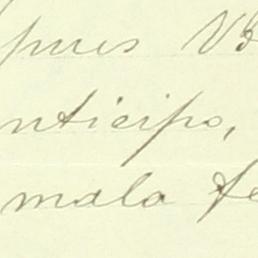 pues V
nticipo,
mala fe